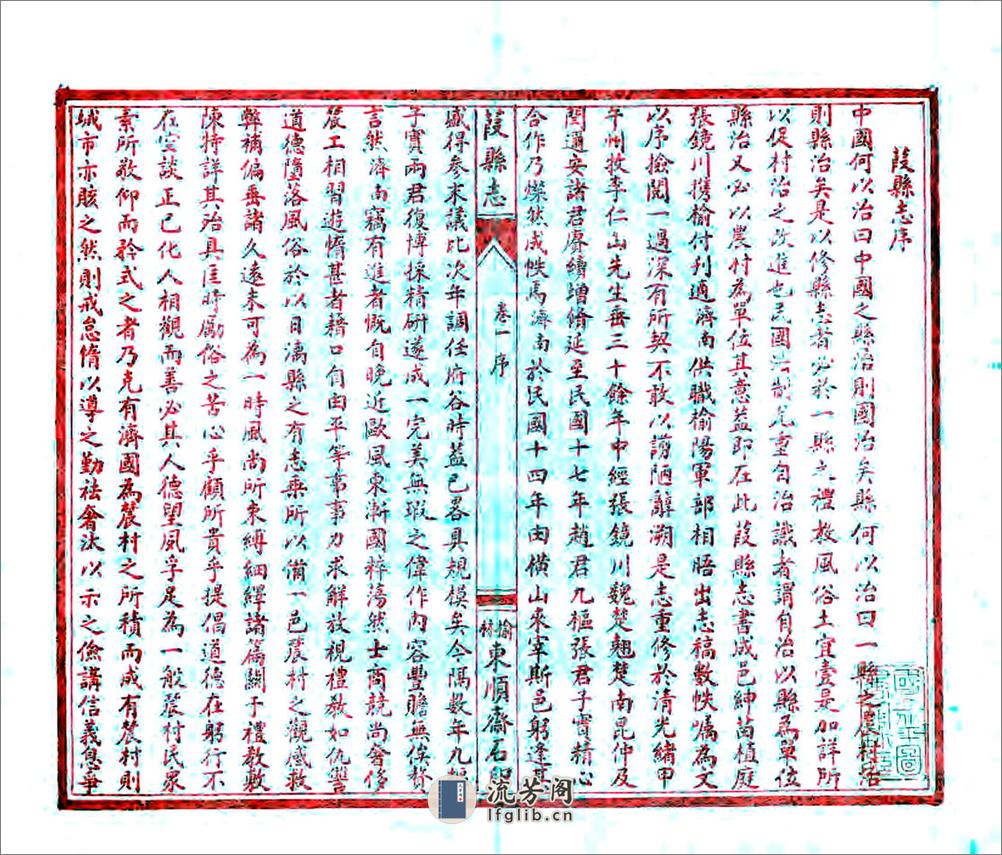 葭縣志序
中國何以治曰中國之縣治則國治矣縣何以治曰一縣之農村治
則縣治矣是以修縣志者必於一縣之禮教風俗土宜壹是加詳所
以促村治之改進也民國法制尤重自治識者謂自治以縣為單位
縣治又必以農村為單位其意益即在此葭縣志書成邑紳苗植庭
張鏡川攜榆付刊適濟南供職榆陽軍部相晤出志稿數帙囑為文
以序撿閱一過深有所契不敢以謭陋辭溯是志重修於清光緒甲
午州牧李仁山先生垂三十餘年中經張鏡川魏楚翹楚南昆仲及
閆週安諸君賡續增脩延至民國十七年趙君九樞張君子寶精心
合作乃燦然成帙焉濟南於民國十四年由橫山來宰斯邑躬逢其
葭縣志
卷一序
榆林東順齋石印
盛得參末議比次年調任府谷時葢已畧具規模矣今隔數年九樞
子寶兩君復博採精研遂成一完美無瑕之偉作內容豐贍無俟贅
言然濟南竊有進者慨自晚近歐風東漸國粹蕩然士商競尚奢侈
農工相習遊惰甚者藉口自由平等事事力求解放視禮教如仇讐
道德墮落風俗於以日漓縣之有志乘所以備一邑農村之觀感救
弊補偏垂諸久遠未可為一時風尚所束縛細繹諸篇關于禮教敷
陳特詳其殆具匡時勵俗之苦心乎顧所貴乎提倡道德在躬行不
在空談正己化人相觀而善必其人德望夙孚足為一般農村民眾
素所敬仰而矜式之者乃克有濟國為農村之所積而成有農村則
城市亦賅之然則戒怠惰以導之勤袪奢汰以示之儉講信義息爭
流芳阁
lfglib.cn